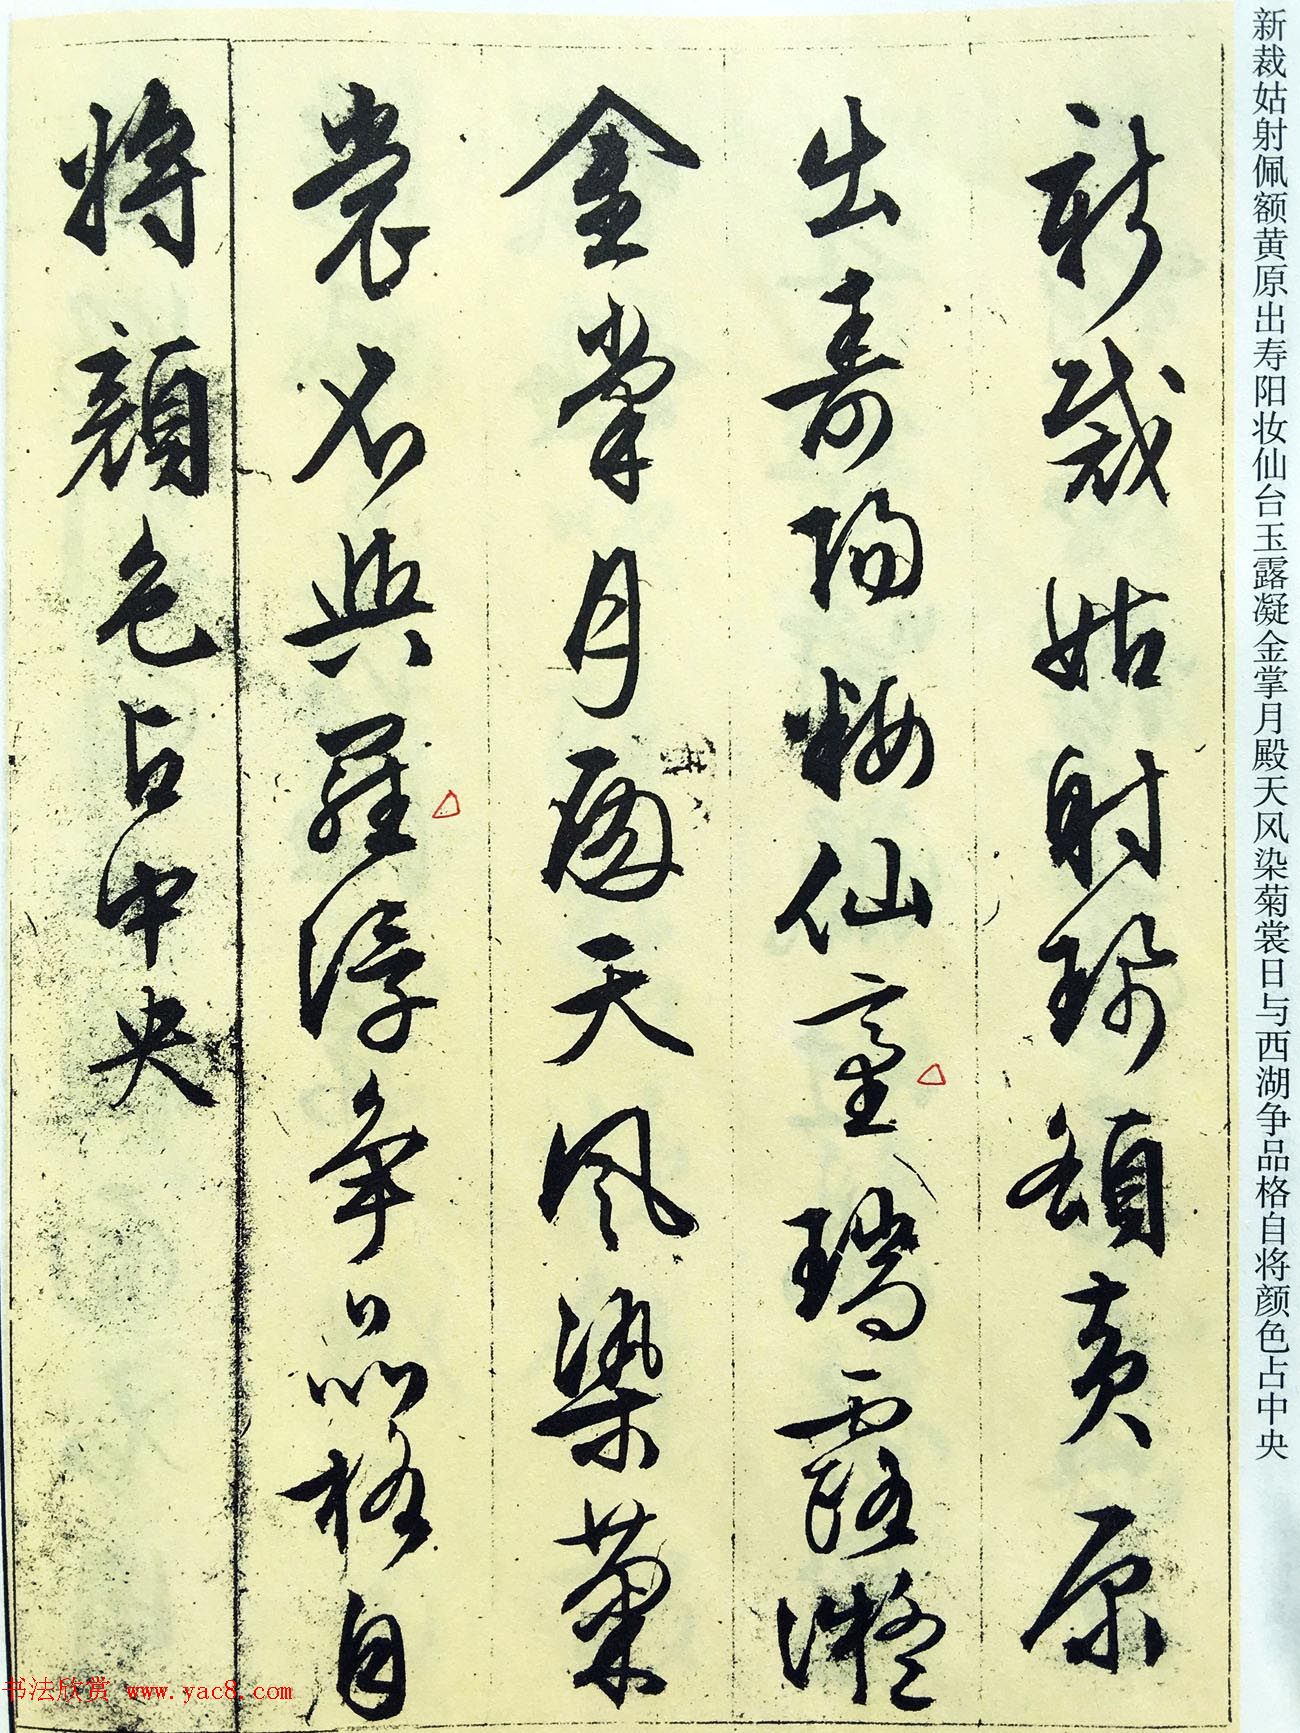 新裁姑射佩额黄原出寿阳妆仙台玉露凝金掌月殿天风染菊裳日与西湖争品格自将颜色占中央
新裁姑射珮額黄原
出壽陽粧仙臺瑞露凝
金掌月殿天風染菊
裳名與羅浮爭品格自
將顔色占中央
书法欣赏 www.yac8.com